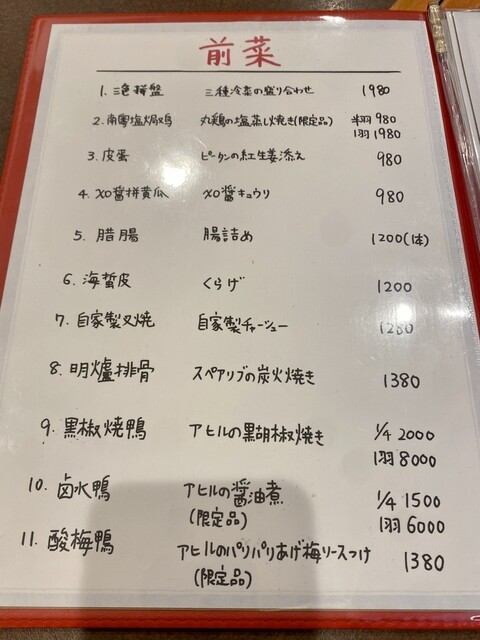 前菜
1. 三色拼盤 三種冷菜の盛り合わせ 1980
2. 南粤塩焗鶏 丸鶏の塩蒸し焼き(限定品) 半羽 980
1羽 1980
3. 皮蛋 ピータンの紅生姜添え 980
4. XO醤拼黄瓜 XO醤キュウリ 980
5. 腊腸 腸詰め 1200(1本)
6. 海蜇皮 くらげ 1200
7. 自家製叉焼 自家製チャーシュー 1280
8. 明爐排骨 スペアリブの炭火焼き 1380
9. 黒椒焼鴨 アヒルの黒胡椒焼き 1/4 2000
1羽 8000
10. 卤水鴨 アヒルの醤油煮 1/4 1500
(限定品) 1羽 6000
11. 酸梅鴨 アヒルのパリパリあげ梅ソースつけ 1380
(限定品)